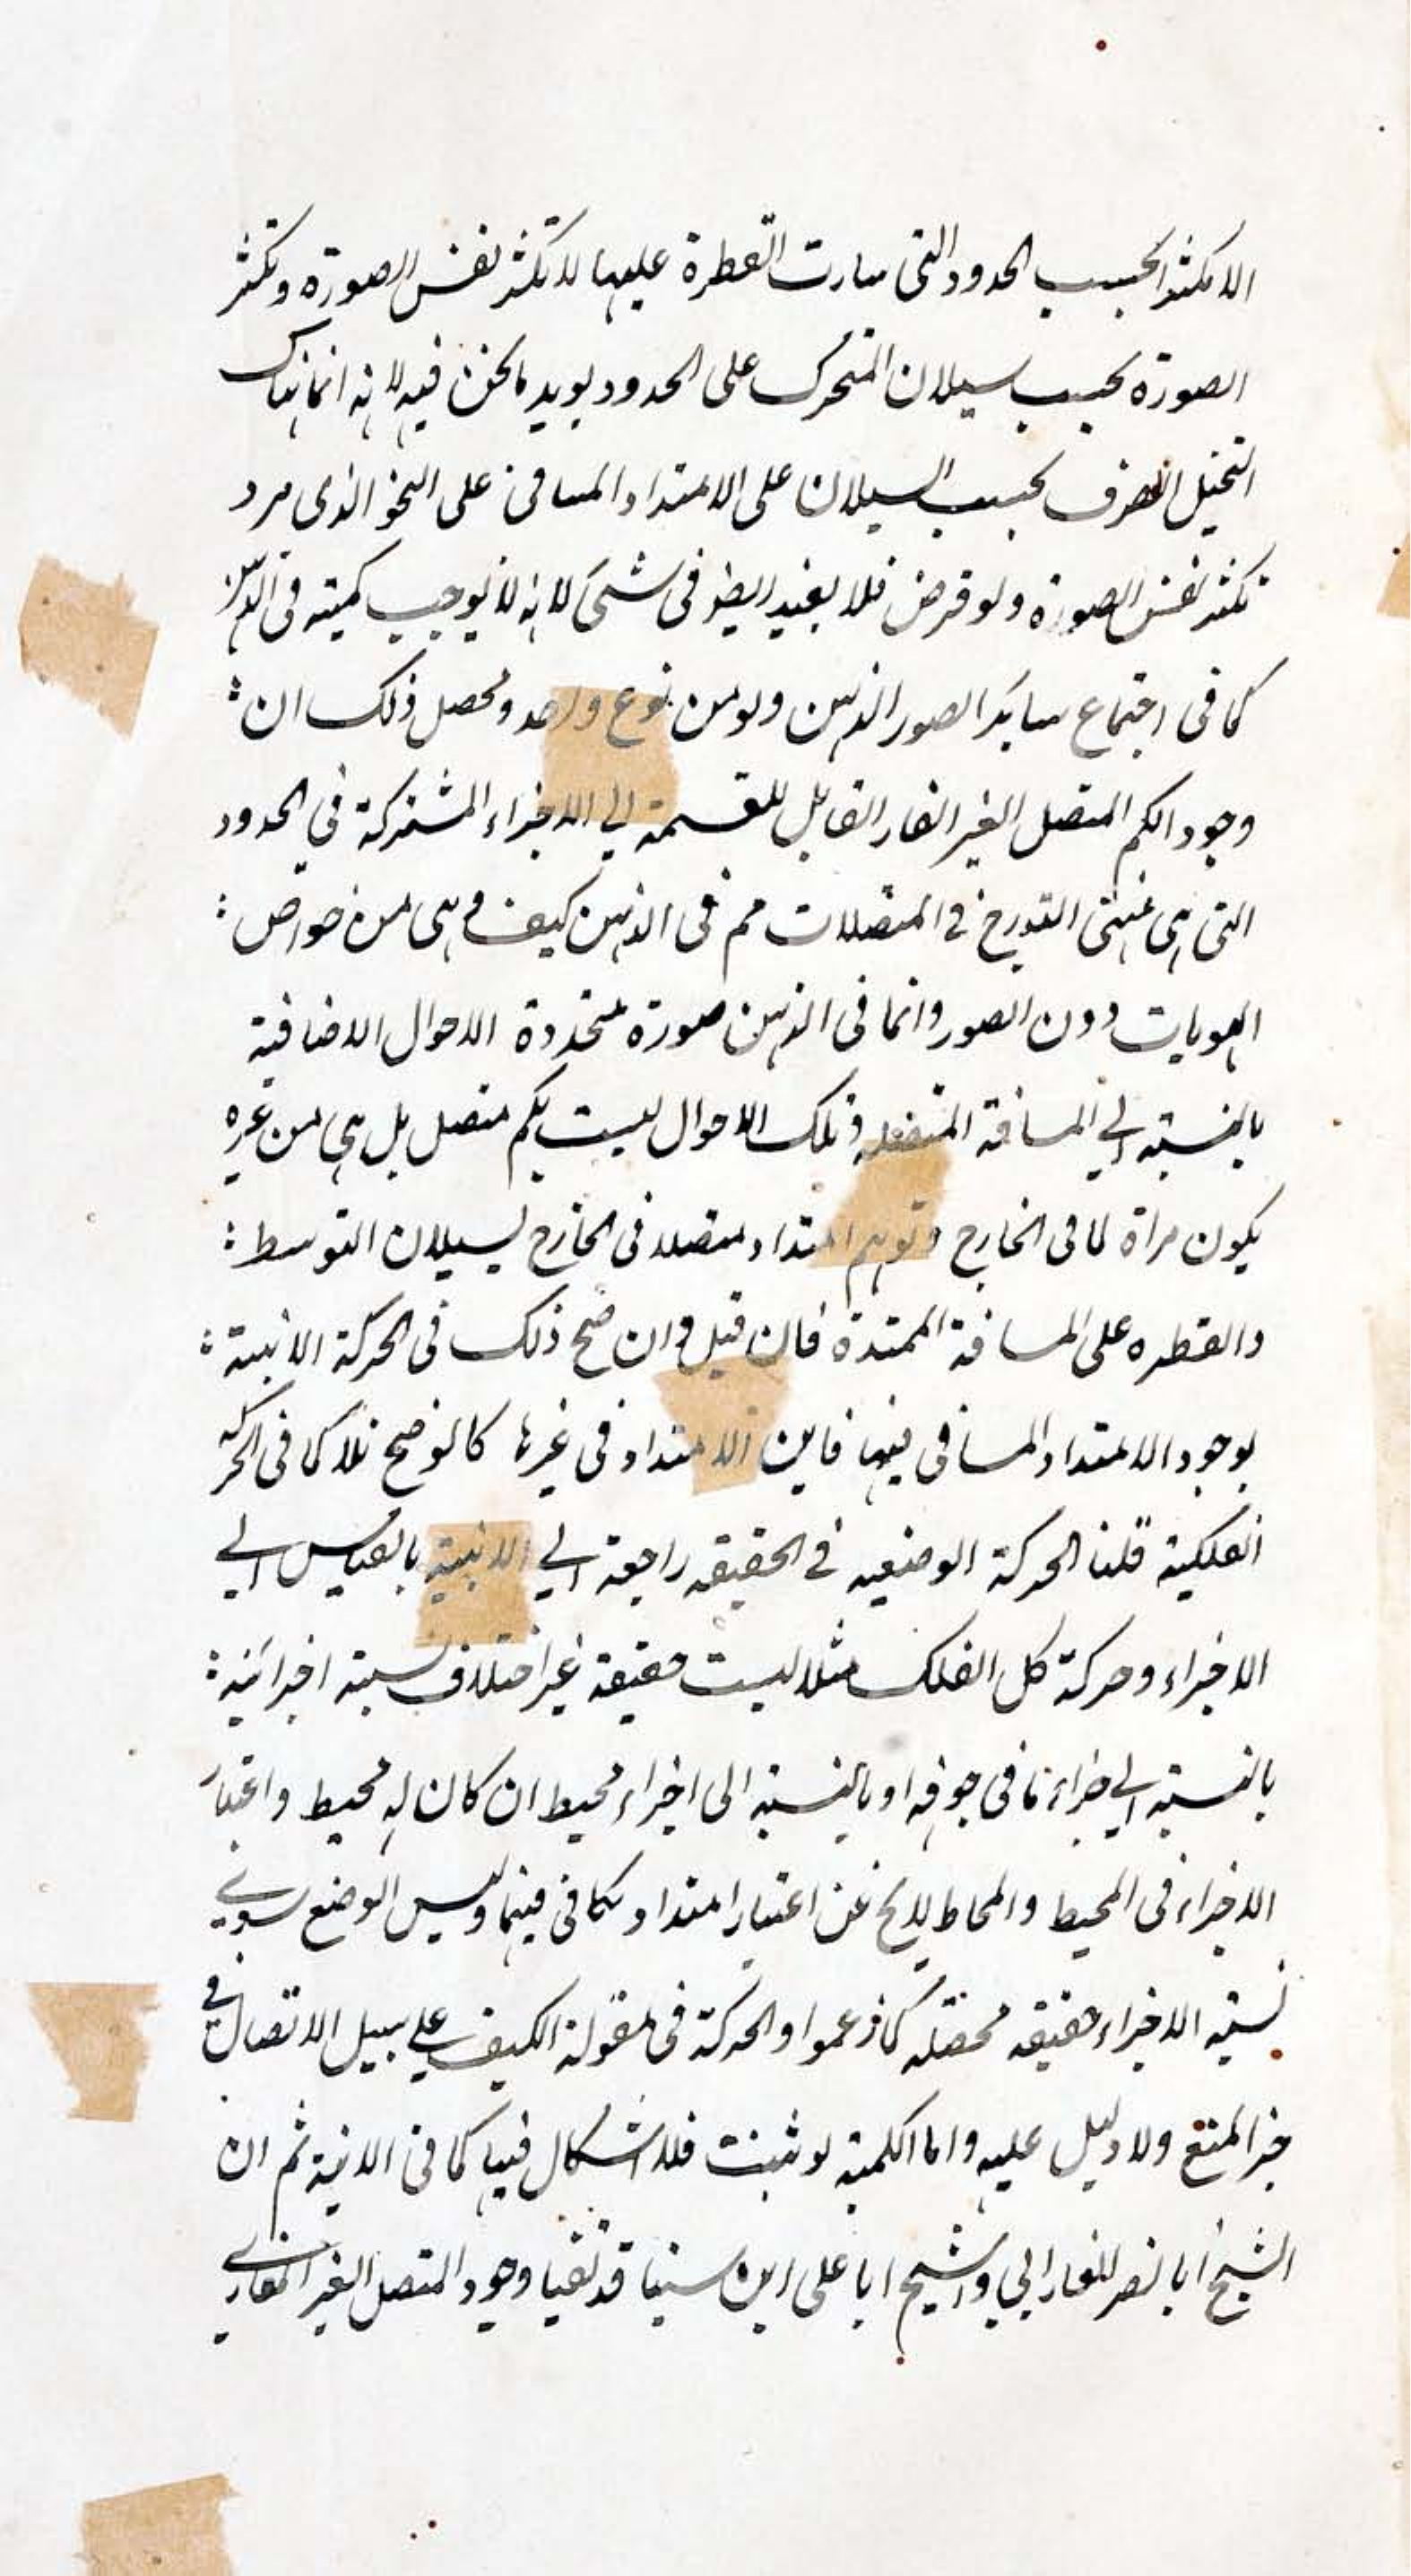 الا تكثرا بحسب الحدود التى سارت القطرة عليها لا تكثر نفس الصورة وتكثر
الصورة بحسب سيلان المتحرك على الحدود يويد ما نحن فيه لانه انما هناك
التخيل الصرف بحسب السيلان على الامتداد المسافى على النحو الذى مر د
تكثر نفس الصورة ولو فرض فلا يفيد ايض فى شىء لانه لا يوجب كميته فى الذهن
كما فى اجتماع ساير الصور الذهن ولو من نوع واحد ومحصل ذلك ان
وجود الكم المتصل الغير القار القابل للقسمة الى الاجزاء المشتركة في الحدود
التى هى فى المتصلات مم فى الذهن كيف وهى من خواص
الهويات دون الصور وانما فى الذهن صورة متجددة الاحوال الاضافية
بالنسبة الى المسافة المتصله وتلك الاحوال ليست بكم متصل بل هى من غيره
يكون مراة لما فى الخارج وتوهم امتداد متصلا فى الخارج لسيلان التوسط
والقطره على المسافة الممتدة فان قيل وان صح ذلك فى الحركة الاينية
بوجود الامتداد المسافى فيها فاين الامتداد فى غيرها كالوضع مثلا كما فى الحركة
الفلكية قلنا الحركة الوضعيه في الحقيقه راجعة الى الاينية بالقياس الى
الاجزاء وحركة كل الفلك مثلا ليست حقيقة غير اختلاف نسبة اجزائه
بالنسبة الى اجزاء ما فى جوفه او بالنسبة الى اجزاء محيط ان كان له محيط واعتبار
الاجزاء فى المحيط والمحاط لا يخ عن اعتبار امتداد مكانى فيهما وليس الوضع سوى
نسبة الاجزاء حقيقه محصله كما زعموا والحركة فى مقولة الكيف على سبيل الاتصال في
حيز المنع ولا دليل عليه واما الكمية لو ثبت فلا اشكال فيها كما فى الاينية ثم ان
الشيخ ابا نصر للفارابي والشيخ ابا على ابن سينا قد نفيا وجود المتصل الغير القار في